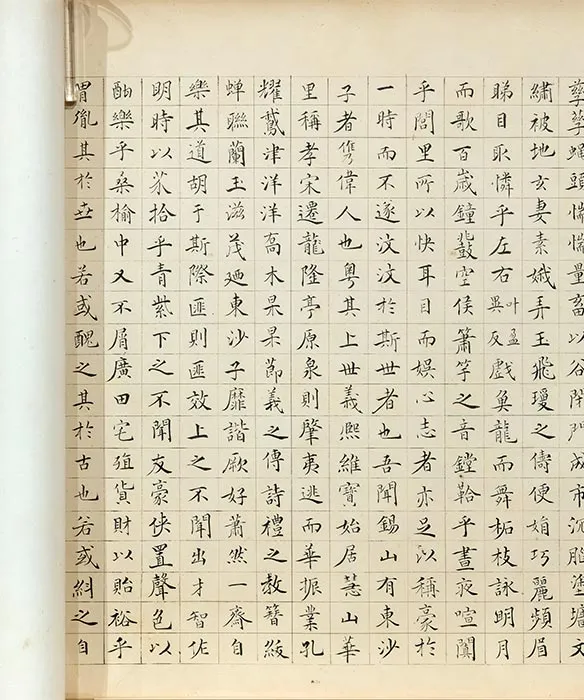 孳孳蝇頭惴惴量畜以谷閉門成市沉脂塗墻文
繡被地衣妻素娥弄玉飛瓊之儔便娟巧麗頻眉
睇目耴憐乎左右異叶孟反戲奐龍而舞柘枝詠明月
而歌百歲鐘鼓空侯簫竽之音鏜鞈乎晝夜喧闐
乎閭里所以快耳目而娛心志者亦足以稱豪於
一時而不遂汶汶於斯世者也吾聞錫山有東沙
子者偉人也粤其上世義熙維寳始居慧山華
里稱孝宋遷龍隆亭原泉則肇夷逃而華振業孔
耀鵞津洋洋喬木杲杲節義之傳詩禮之教簪紱
蟬聯蘭玉滋茂廼東沙子靡諧厥好蕭然一齋自
樂其道胡于斯際匪則匪效上之不聞出才智佐
明時以芥拾乎青紫下之不聞友豪俠置聲色以
酣樂乎桑榆中又不屑廣田宅殖貨財以貽裕乎
胄胤其於世也若或醜之其於古也若或糾之自